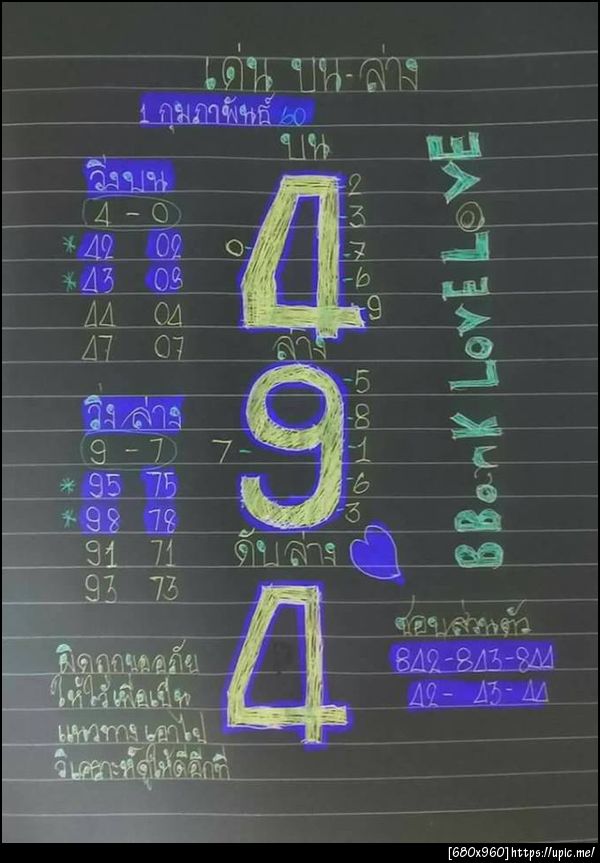 เด่น บน-ล่าง
1 กุมภาพันธ์ 60
บน
4
2
3
0-
-7
-6
9
วิ่งบน
4 - 0
*42 02
*43 03
44 04
47 07
ล่าง
9
-5
-8
7-
-1
-6
-3
วิ่งล่าง
9 - 7
*95 75
*98 78
91 71
93 73
ดับล่าง
4
BBank LOVE LOVE
ชอบส่วนตัว
842-843-844
42- 43-44
ผิดถูกขออภัย
ให้ไว้เพื่อเป็น
แนวทางเอาไป
วิเคราะห์ดูให้ดีอีกที
[680x960]https://upic.me/